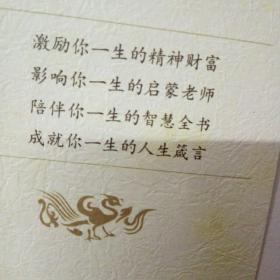 激励你一生的精神财富
影响你一生的启蒙老师
陪伴你一生的智慧全书
成就你一生的人生箴言